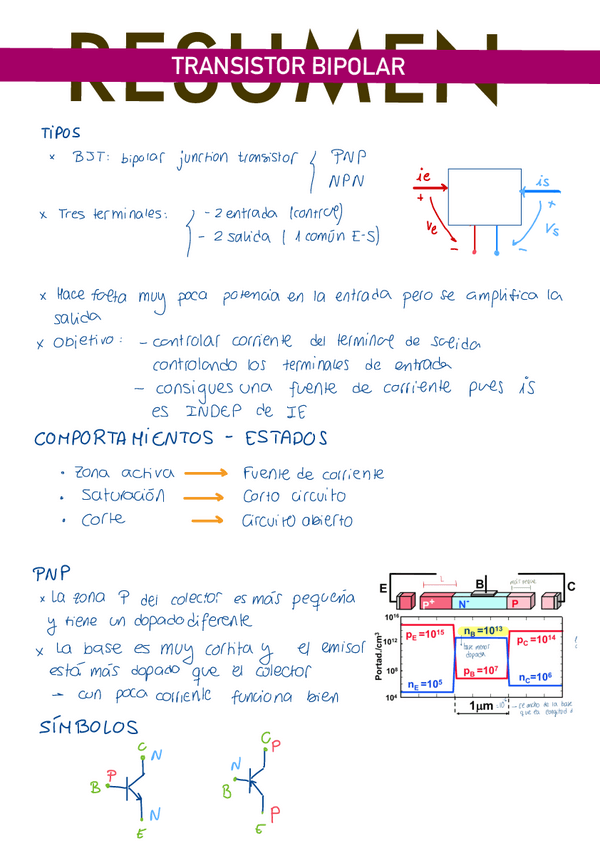 RESUMEN
TRANSISTOR BIPOLAR
TIPOS
x BJT: bipolar junction transistor { PNP
NPN
x Tres terminales: { - 2 entrada (control)
- 2 salida ( 1 común E-S)
ie
+
Ve
-
is
+
Vs
-
x Hace falta muy poca potencia en la entrada pero se amplifica la
salida
x Objetivo: - controlar corriente del terminal de salida
controlando los terminales de entrada
- consigues una fuente de corriente pues is
es INDEP de IE
COMPORTAMIENTOS - ESTADOS
• Zona activa → Fuente de corriente
• Saturación → Corto circuito
• Corte → Circuito abierto
PNP
x La zona P del colector es más pequeña
y tiene un dopado diferente
x La base es muy cortita y el emisor
está más dopado que el colector
→ con poca corriente funciona bien
E
L
B
C
P+
N-
P
Portad./cm³
10¹⁶
10¹²
10⁸
10⁴
pE=10¹⁵
nB=10¹³
pC=10¹⁴
base menor
dopada
pB=10⁷
nE=10⁵
nC=10⁶
1μm
SÍMBOLOS
C
N
P
B
N
E
C
P
N
B
P
E